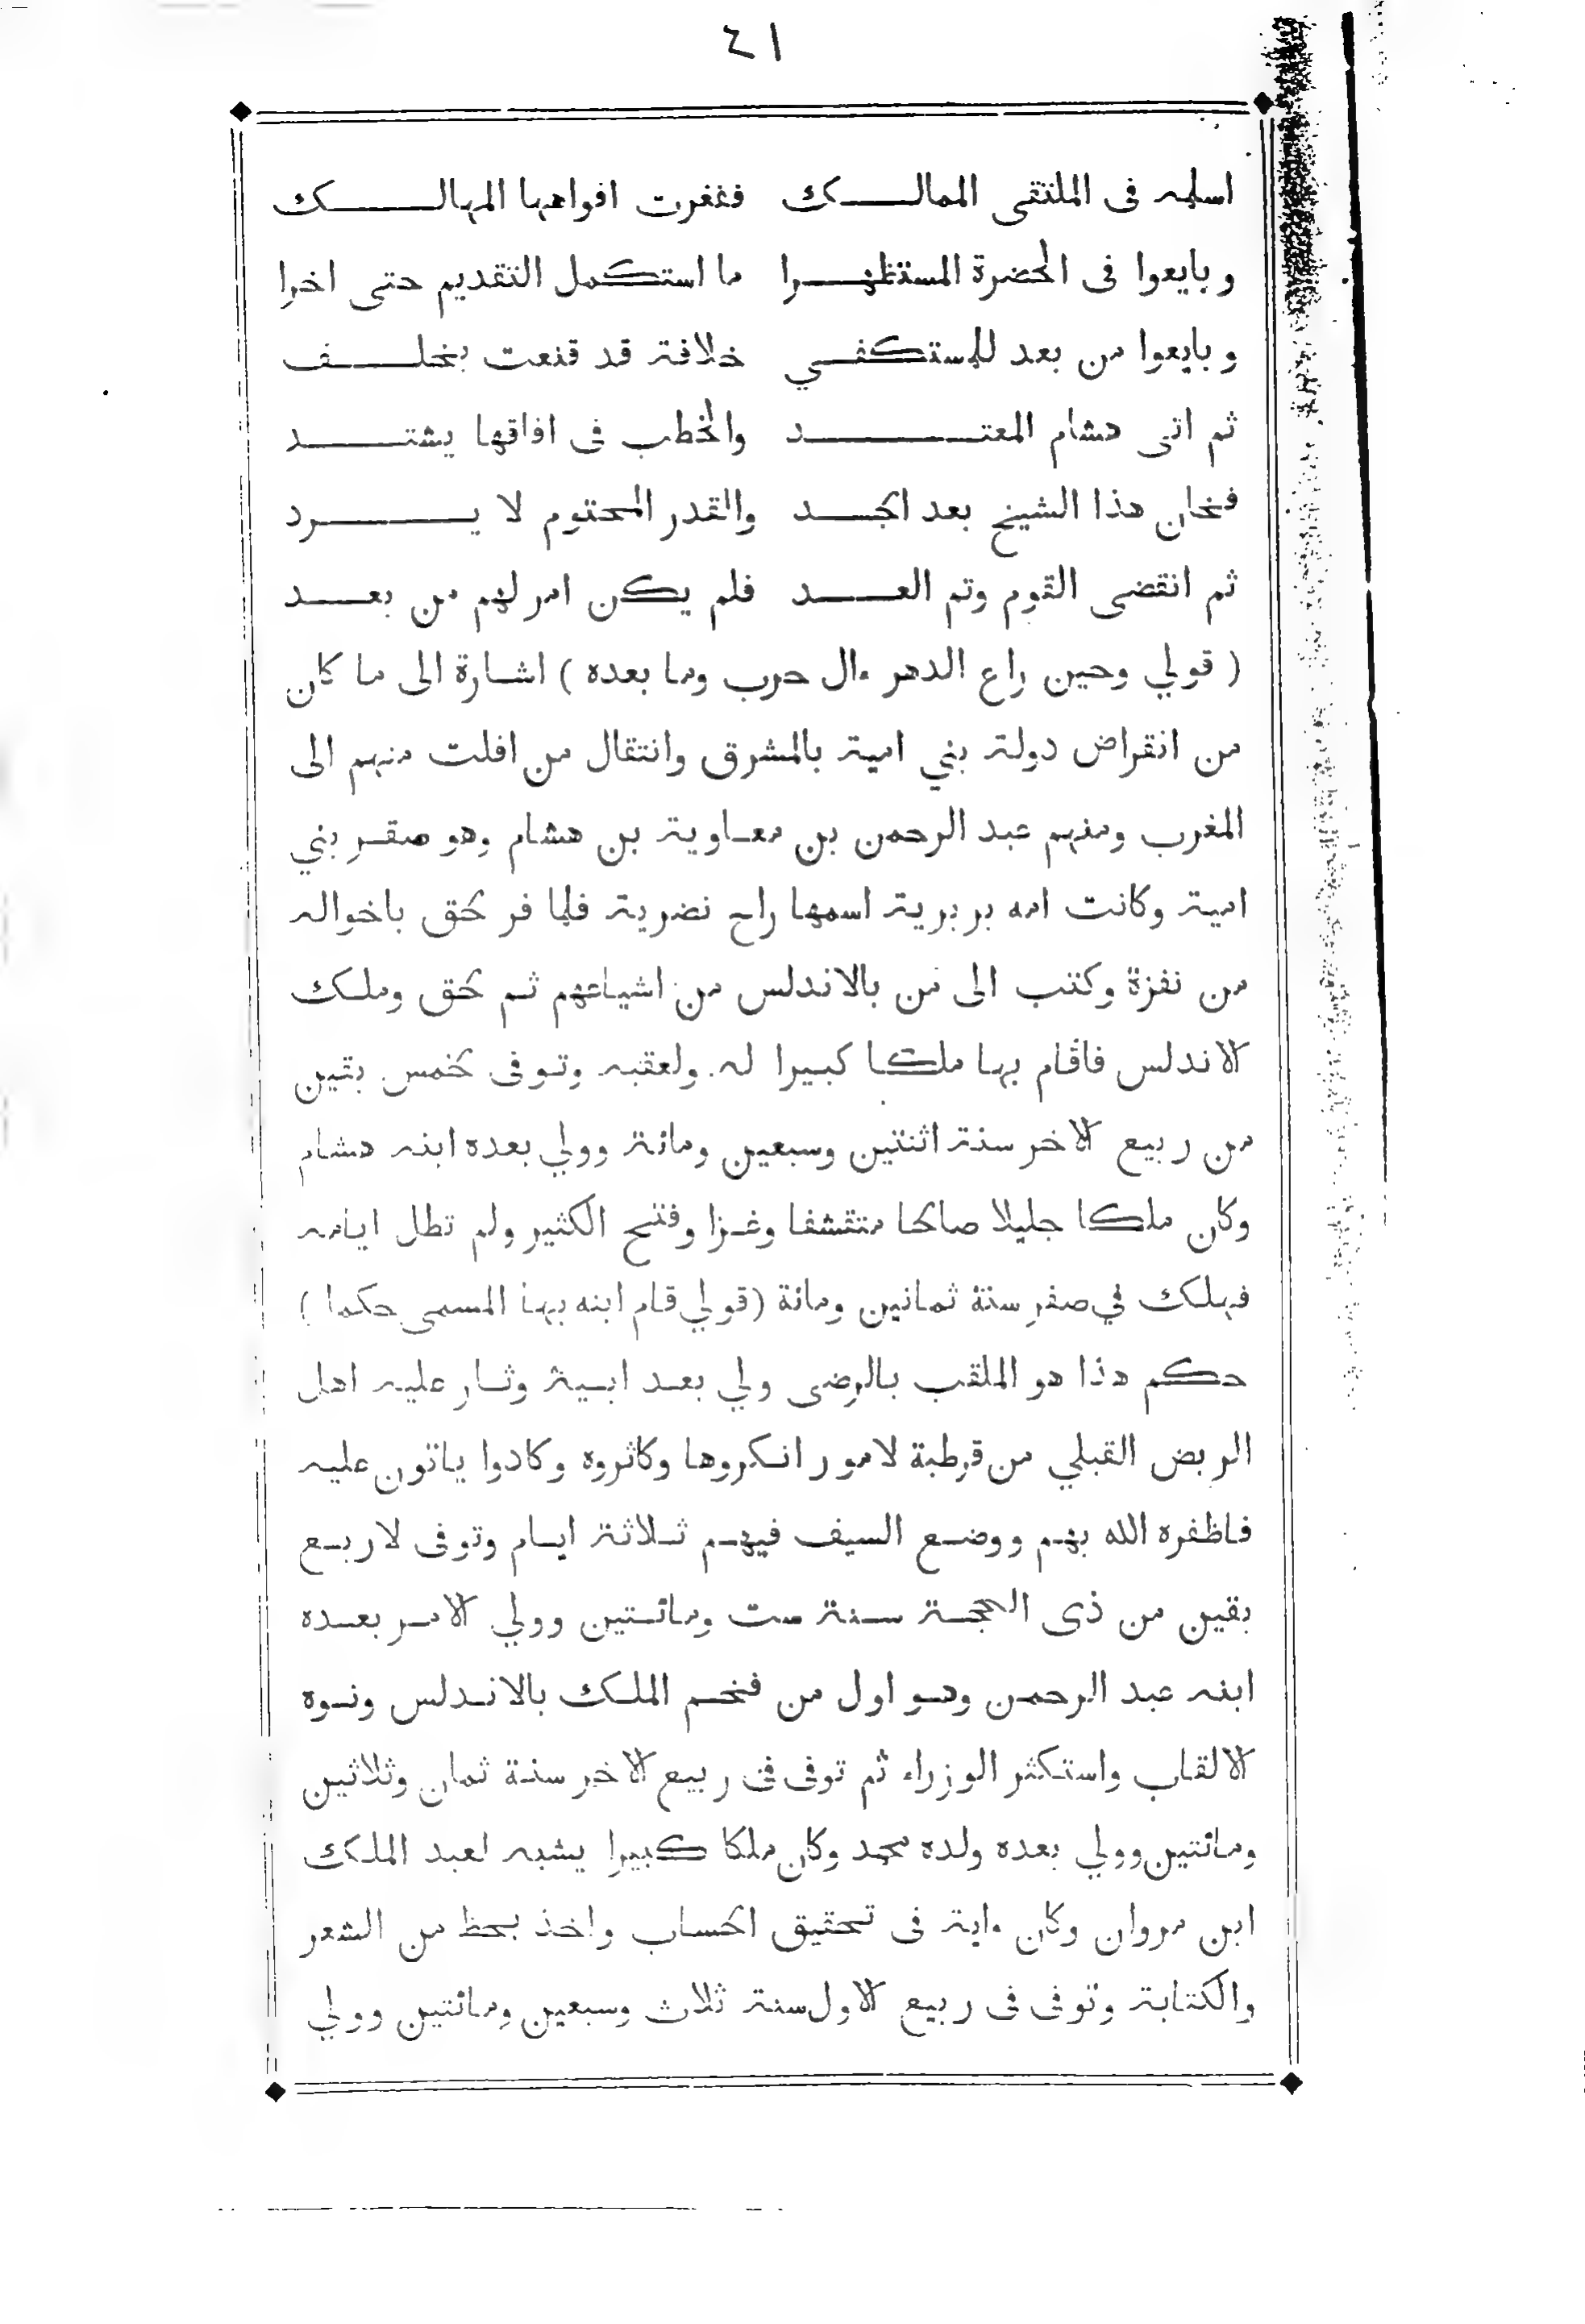 ٤١
اسلمه فى الملتقى الممالك ففغرت افواهها المهالك
وبايعوا فى الحضرة المستظهرا ما استكمل التقديم حتى اخرا
وبايعوا من بعد للمستكفي خلافة قد قنعت بخلف
ثم اتى هشام المعتد والخطب فى افاقها يشتد
فخان هذا الشيخ بعد الجد والقدر المحتوم لا يرد
ثم انقضى القوم وتم العد فلم يكن امر لهم من بعد
( قولي وحين راع الدهر ءال حرب وما بعده ) اشارة الى ما كان
من انقراض دولة بني امية بالمشرق وانتقال من افلت منهم الى
المغرب ومنهم عبد الرحمن بن معاوية بن هشام وهو صقر بني
امية وكانت امه بربرية اسمها راح نضرية فلما فر لحق باخواله
من نفزة وكتب الى من بالاندلس من اشياعهم ثم لحق وملك
الاندلس فاقام بها ملكا كبيرا له ولعقبه وتوفى لخمس بقين
من ربيع الاخر سنة اثنتين وسبعين ومائة وولي بعده ابنه هشام
وكان ملكا جليلا صالحا متقشفا وغزا وفتح الكثير ولم تطل ايامه
فهلك في صفر سنة ثمانين ومائة (قولي قام ابنه بها المسمى حكما )
حكم هذا هو الملقب بالرضى ولي بعد ابية وثار عليه اهل
الربض القبلي من قرطبة لامور انكروها وكاثروه وكادوا ياتون عليه
فاظفره الله بهم ووضع السيف فيهم ثلاثة ايام وتوفى لاربع
بقين من ذى الحجة سنة ست ومائتين وولي الامر بعده
ابنه عبد الرحمن وهو اول من فخم الملك بالاندلس ونوه
الالقاب واستكثر الوزراء ثم توفى فى ربيع الاخر سنة ثمان وثلاثين
ومائتين وولي بعده ولده محمد وكان ملكا كبيرا يشبه لعبد الملك
ابن مروان وكان ءاية فى تحقيق الحساب واخذ بحظ من الشعر
والكتابة وتوفى فى ربيع الاول سنة ثلاث وسبعين ومائتين وولي